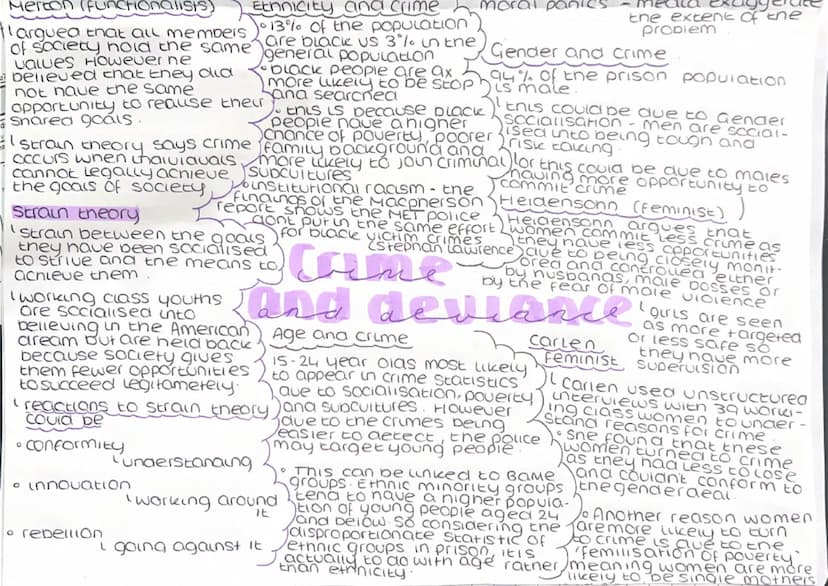 Merton (Functionalism)
ʅ argued that all members
of society hold the same
values However he
believed that they did
not have the same
opportunity to realise their
shared goals.
ʅ strain theory says crime
occurs when individuals
cannot legally achieve
the goals of society
strain theory
ʅ strain between the goals
they have been socialised
to strive and the means to
achieve them.
ʅ working class youths
are socialised into
believing in the American
dream but are held back
because society gives
them fewer opportunities
to succeed legitametely.
ʅ reactions to strain theory
could be
◦ conformity
ʅ understanding
◦ innovation
ʅ working around
it
◦ rebellion
ʅ going against it
Ethnicity and crime
◦ 13% of the population
are black vs 3% in the
general population
◦ black people are 9x
more likely to be stop
and searched
◦ this is because black
people have a higher
chance of poverty, poorer
family background and
more likely to join criminal
subcultures
◦ institutional racism - the
findings of the Macpherson
report shows the MET police
dont put in the same effort
for black victim crimes
(Stephan Lawrence
Crime
and deviance
Age and crime
15-24 year olds most likely
to appear in crime statistics
due to socialisation, poverty
and subcultures. However
due to the crimes being
easier to detect, the police
may target young people.
◦ This can be linked to BAME
groups. Ethnic minority groups
tend to have a higher popula-
tion of young people aged 24
and below. So considering the
disproportionate statistic of
ethnic groups in prison, it is
actually to do with age rather
than ethnicity.
moral panics - media exaggerate
the extent of the
problem
Gender and crime
94% of the prison population
is male.
ʅ this could be due to Gender
socialisation - men are social-
ised into being tough and
risk taking.
ʅ or this could be due to males
having more opportunity to
commit crime
Heidensohn (feminist)
Heidensonn argues that
women commit less crime as
they have less opportunities
due to being closely monit-
ored and controlled either
by husbands, male bosses or
by the fear of male violence
ʅ girls are seen
as more targeted
or less safe so
they have more
supervision
Carlen
feminist
ʅ Carlen used unstructured
interviews with 39 worki-
ing class women to under-
stand reasons for crime.
◦ she found that these
women turned to crime
as they had less to lose
and couldnt conform to
the gender deal.
◦ Another reason women
are more likely to turn
to crime is due to the
'femilisation of poverty'
meaning women are more
likely to be single mothers